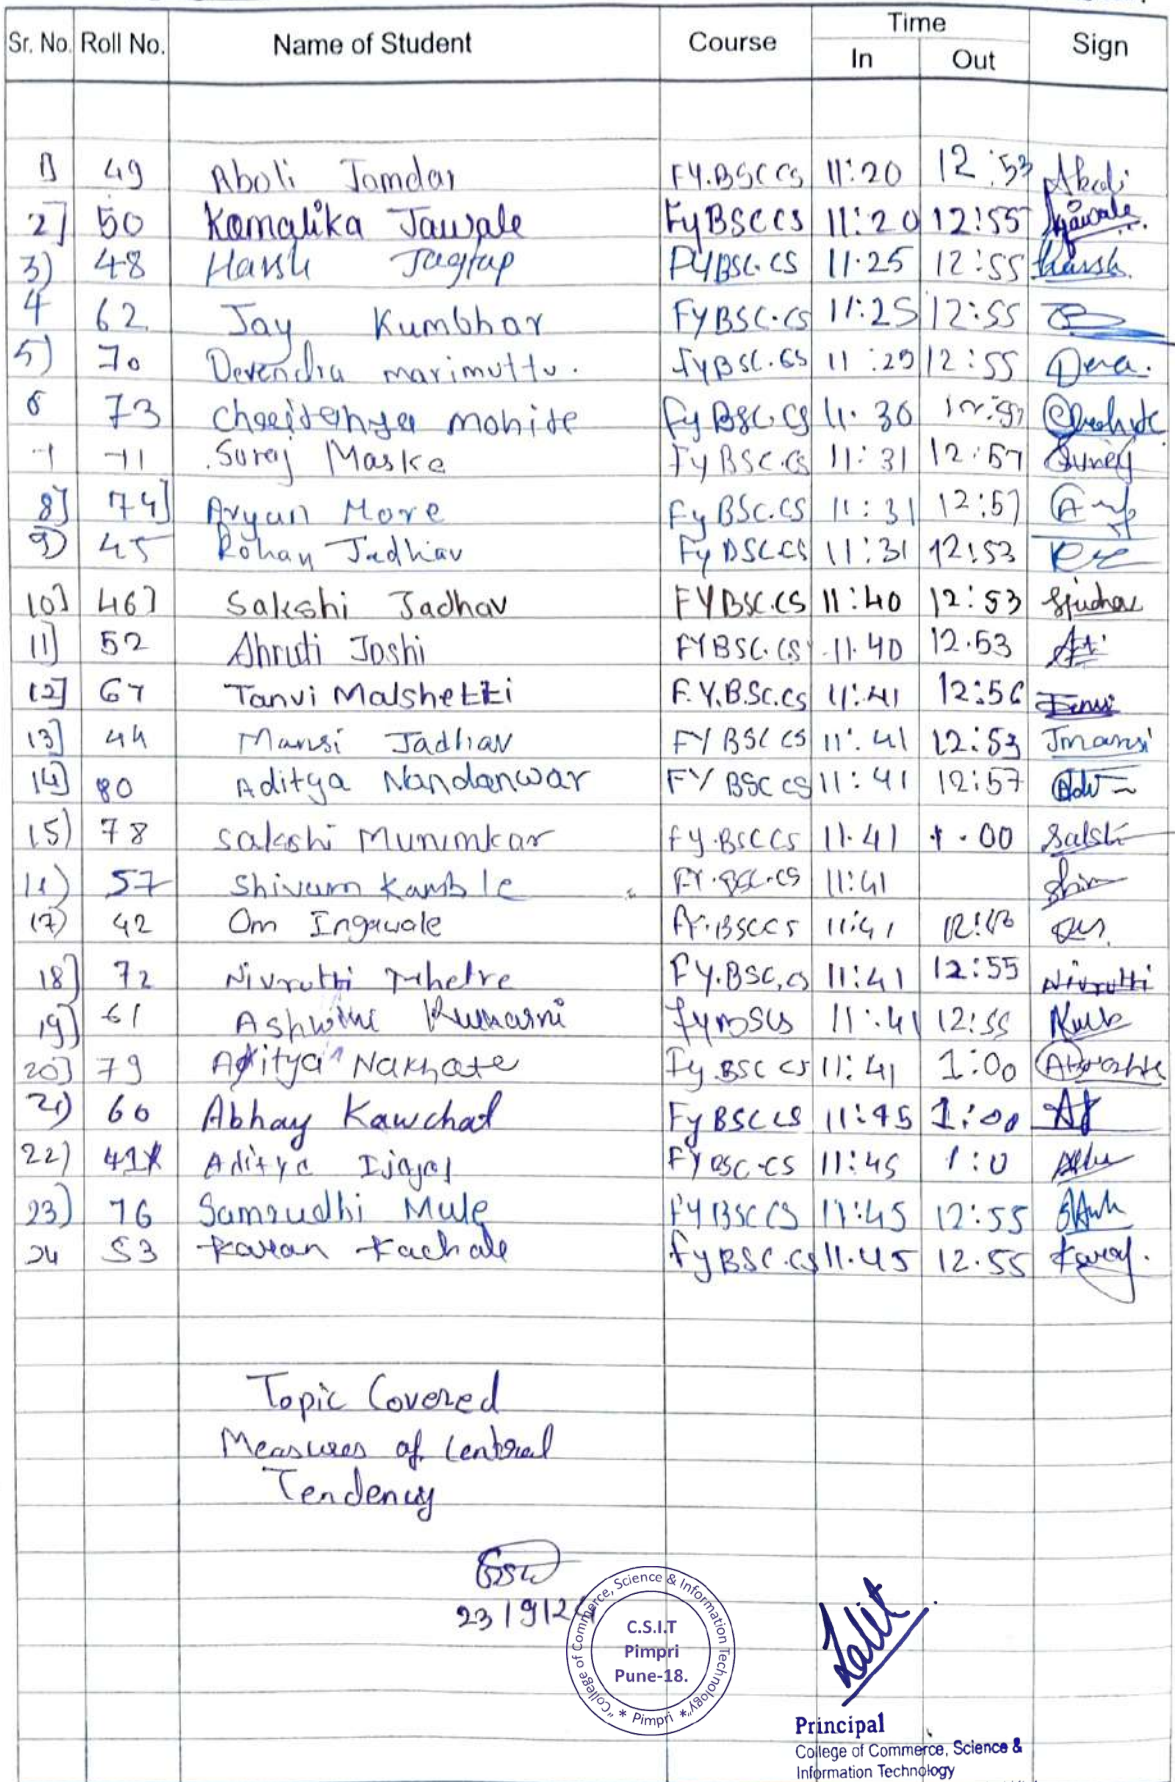 Sr. No. Roll No. Name of Student Course Time In Out Sign
1) 49 Aboli Jamdar FY.BSC CS 11:20 12:53 Aboli
2] 50 Kamalika Jawale FyBSCCS 11:20 12:55 Kjawale
3) 48 Harsh Jagtap FYBSC.CS 11.25 12:55 Harsh.
4 62 Jay Kumbhar FYBSC.CS 11:25 12:55
5) 70 Devendra marimuttu. FyBSC.CS 11:29 12:55 Deva.
6 73 Chaitanya mohite FyBSC.CS 11.30
71 Suraj Maske FyBSC.CS 11:31 12:57 Suraj
8] 74] Aryan More FyBSC.CS 11:31 12:57
9) 45 Rohan Jadhav FyBSC.CS 11:31 12:53
10] 46] Sakshi Jadhav FYBSC.CS 11:40 12:53 Sjadhav
11] 52 Ahruti Joshi FYBSC.CS 11.40 12.53
12] 67 Tanvi Malshetti F.Y.B.Sc.CS 11:41 12:56 Tanvi
13] 44 Mansi Jadhav FYBSC CS 11:41 12:53 Jmansi
14] 80 Aditya Nandanwar FYBSC CS 11:41 12:57
15) 78 Sakshi Munimkar Fy.BSCCS 11.41 1.00 Saksh
16) 57 Shivam Kamble FY.BSC.CS 11:41 Shivam
17) 42 Om Ingawale FY.BSCCS 11:41
18] 72 Nivrutti Mhetre FY.BSC,CS 11:41 12:55 Nivrutti
19] 61 Ashwini 11:41 12:55
20] 79 Aditya Nakhate Fy.BSC CS 11:41 1:00
21) 60 Abhay Kawchat FyBSCCS 11:45 1:00
22) 41 Aditya FYBSC CS 11:45 1:0
23) 76 Samrudhi Mule FYBSCCS 11:45 12:55
24 53 Karan Kachale FyBSC.CS 11.45 12.55 Karan.
Topic Covered
Measures of Central
Tendency
23/9/2
"College of Commerce, Science & Information Technology" * Pimpri *
C.S.I.T
Pimpri
Pune-18.
Lalit
Principal
College of Commerce, Science &
Information Technology